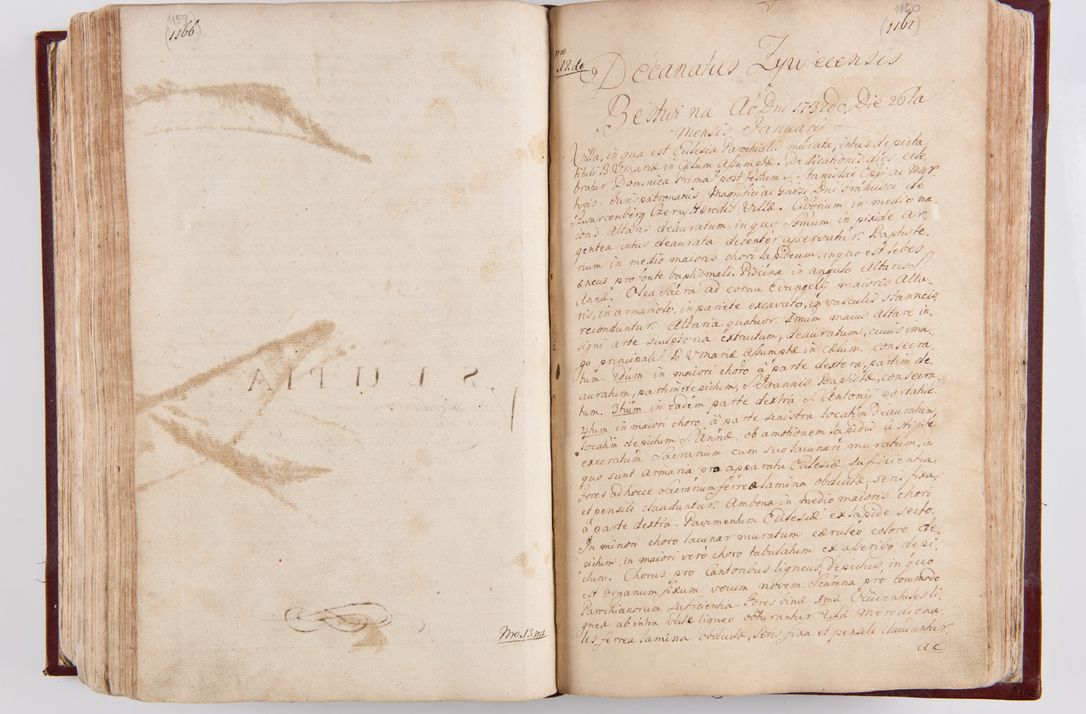 1159
(1166)
Nro 12mus
1160
(1161)
nro
12do
Decanatus Zywecensis
Bestwina Ao Dni 1732do, Die 26ta
mensis Januarij
Villa, in qua est Eclesia Parochialis murata, intus depicta
tituli B V Mariæ in Cælum Assumptæ. Dedicationis dies cele
bratur Dominica prima post festum S. Stanislai Eppi ac Mar
tyris. Juris patronatus Magnifici ac Gnosi Dni Francisci de
Szwarcenberg Czerny Hæredis Villæ. Ciborium in medio ma
ioris Altaris deauratum, in quo Ssmum in pixide Ar
gentea intus deaurata decenter asservatur. Baptiste
rium in medio maioris chori lapideum, in quo est lebes
æneus pro fonte baptismali. Piscina in angulo Altaris S.
Annæ. Olea sacra ad cornu Evangelij maioris Alta
ris, in armariolo, in pariete excavato, in vasculis stanneis
reconduntur. Altaria quatuor. Imum maius Altare in
signi arte sculptoria extructum, deauratum, cuius ima
go principalis B V Mariæ Assumptæ in Cælum, consecra
tum. 2dum in maiori choro à parte dextera, partim de
auratum, partim depictum, S. Joannis Baptistæ, consecra
tum. 3tium in eadem parte dextra S. Antonij portatile.
4tum in maiori choro, à parte sinistra locatim deauratum,
locatim depictum S. Annæ ob amotionem lapidis à stipite
execratum. Sacrarium cum suo lacunari muratum, in
quo sunt armaria pro apparatu Eclesiæ sufficientia,
fores ad hocce Sacrarium ferrea lamina obductæ, seris fixa,
et pensili clauduntur. Ambona in medio maioris chori
à parte dextra. Pavimentum Eclesiæ ex lapide secto.
In minori choro lacunar muratum cæruleo colore de
pictum, in maiori verò choro tabulatum ex asseribus depi
ctum. Chorus pro Cantoribus ligneus, depictus, in quo
est Organum fixum vocum novem. Scamna pro commodo
Parochianorum sufficientia. Fores binæ
ligneo obturantur
les ferrea lamina obductæ, seris fixa et pensili clauduntur
ac